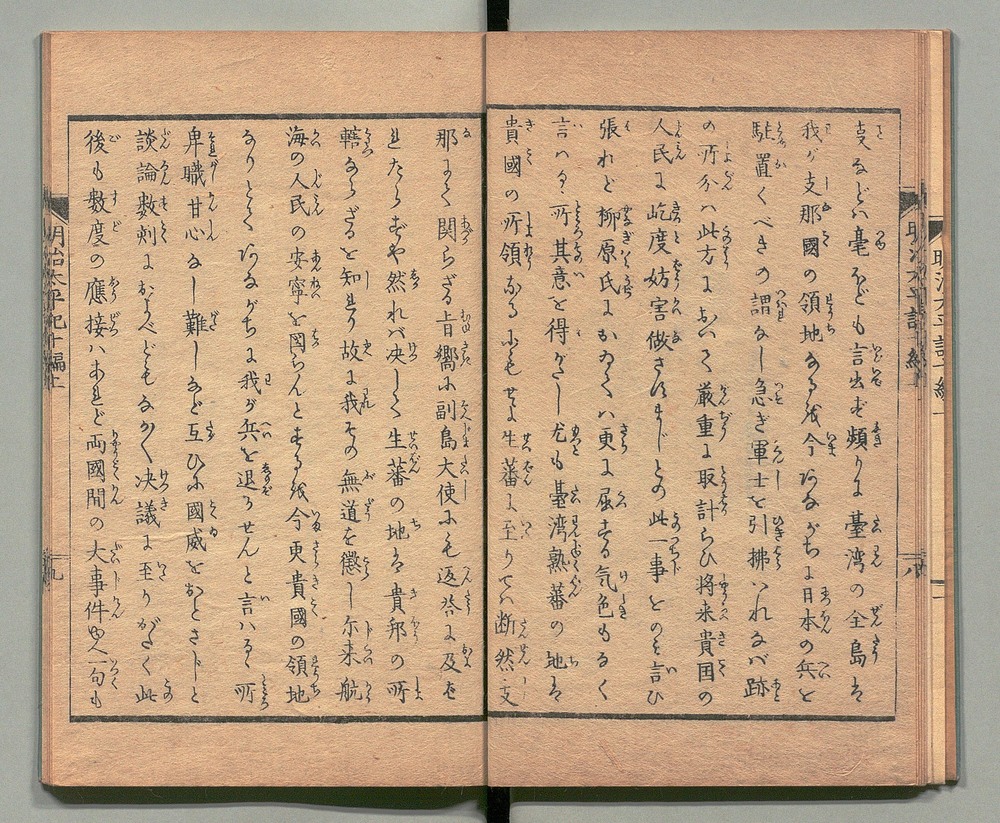 支などハ毫ほども言出ず頻りに臺湾の全島は
我が支那國の領地なるを今あながちに日本の兵と
駐置くべきの謂なし急ぎ軍士を引拂ハれなバ跡
の所分ハ此方において厳重に取計らひ将来貴国の
人民に屹度妨害做さはまじとの此一事とのミ言ひ
張れど柳原氏にかなくハ更に屈する気色もなく
言ハる所其意を得がたし尤も臺湾熟蕃の地は
貴國の所領なるにもせよ生蕃に至りてハ断然支
那にて関らざる旨嚮に副島大使にも返答に及は
れたらずや然れバ决して生蕃の地は貴邦の所
轄ならざるを知れり故に我その無道を懲し尓来航
海の人民の安寧を図らんとするを今更貴國の領地
なりとてあながちに我が兵を退りせんと言ハるゝ所
卑職甘心なし難しなど互ひに國威をおとさじと
談論数刻におよべどもなかく决議に至りがたく此
後も数度の應接ハあれど両國間の大事件ゆへ一句も
明治太平記十編上
九
八